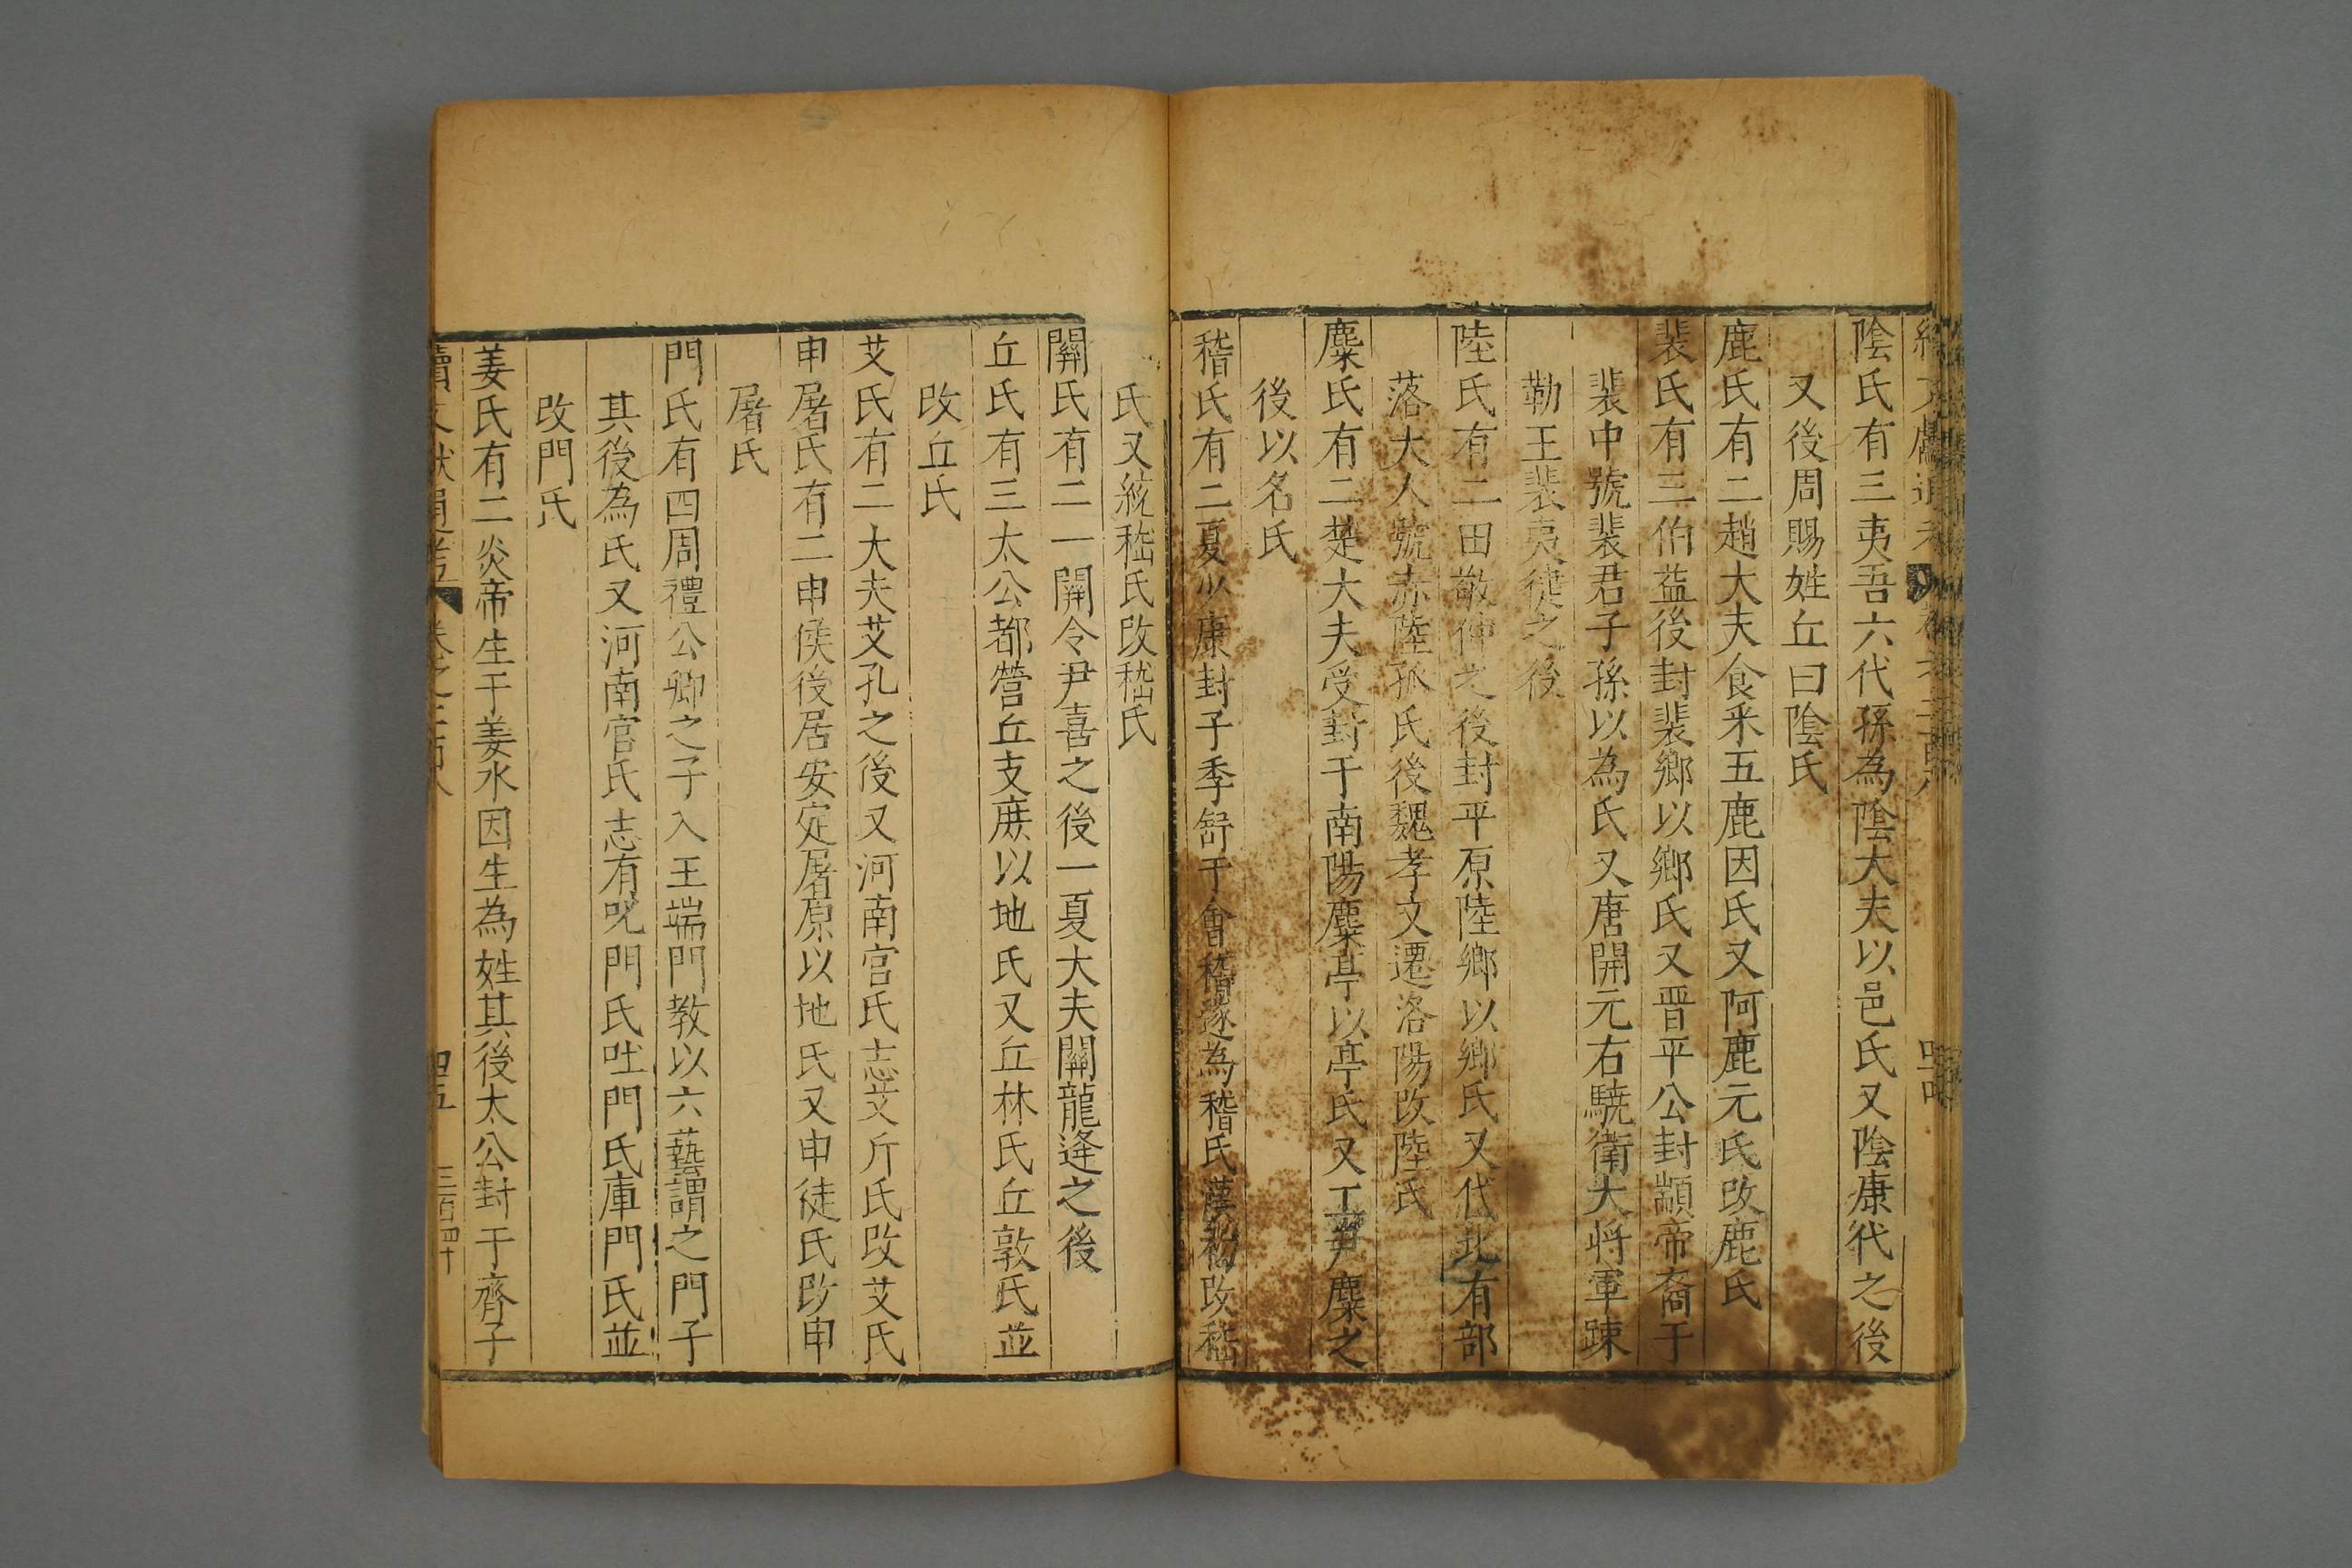 陰氏有三夷吾六代孫為陰大夫以邑氏又陰康代之後
又後周賜姓丘曰陰氏
鹿氏有二趙大夫食采五鹿因氏又阿鹿元氏改鹿氏
裴氏有三伯益後封裴鄉以鄉氏又晋平公封顓帝裔于
裴中號裴君子孫以為氏又唐開元右驍衛大將軍踈
勒王裴夷健之後
陸氏有二田敬仲之後封平原陸鄉以鄉氏又代北有部
落大人號赤陸孤氏後魏孝文遷洛陽改陸氏
麋氏有二楚大夫受封于南陽麋亭以亭氏又工尹麋之
後以名氏
稽氏有二夏少康封子季䌷于會稽遂為稽氏漢初改嵇
氏又綂嵇氏改嵇氏
關氏有二一關令尹喜之後一夏大夫關龍逄之後
丘氏有三太公都營丘支庶以地氏又丘林氏丘敦氏並
改丘氏
艾氏有二大夫艾孔之後又河南官氏志艾斤氏改艾氏
申屠氏有二申侯後居安定屠原以地氏又申徒氏改申
屠氏
門氏有四周禮公卿之子入王端門教以六藝謂之門子
其後為氏又河南官氏志有叱門氏吐門氏庫門氏並
改門氏
姜氏有二炎帝生于姜水因生為姓其後太公封于齊子
續文獻通考 卷之二百八
四五
三百四十